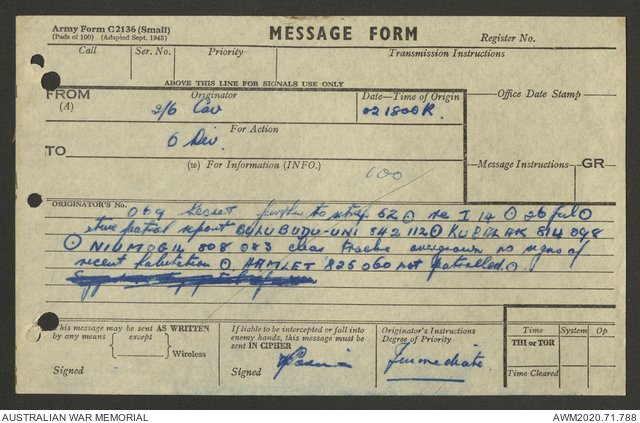 Army Form C2136 (Small)
(Pads of 100) (Adapted Sept. 1943)
MESSAGE FORM
Register No.
Call Ser. No. Priority Transmission Instructions
ABOVE THIS LINE FOR SIGNALS USE ONLY
FROM
(A)
Originator
2/6 Cav
Date—Time of Origin
021800K.
Office Date Stamp
For Action
TO
6 Div.
(W) For Information (INFO.)
100
Message Instructions
GR
ORIGINATOR'S No.
O69 Secret to 52 re I 14 26 Jul
patrol report BULUBUDU-UNI 842 112 KUBALAK 814 098
NIUMOGIL 808 083 clear tracks overgrown no signs of
recent habitation HAMLET 825 060 not patrolled
This message may be sent AS WRITTEN
by any means except
Wireless
Signed
If liable to be intercepted or fall into
enemy hands, this message must be
sent IN CIPHER
Signed
Originator's Instructions
Degree of Priority
Immediate
Time System Op
THI or TOR
Time Cleared
AUSTRALIAN WAR MEMORIAL AWM2020.71.788